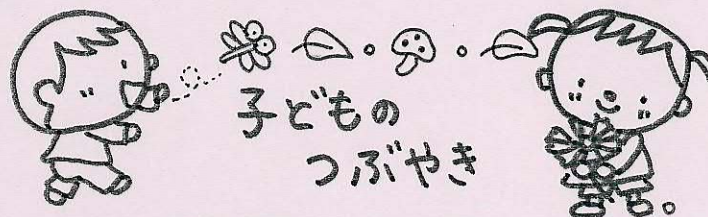 子どもの
つぶやき